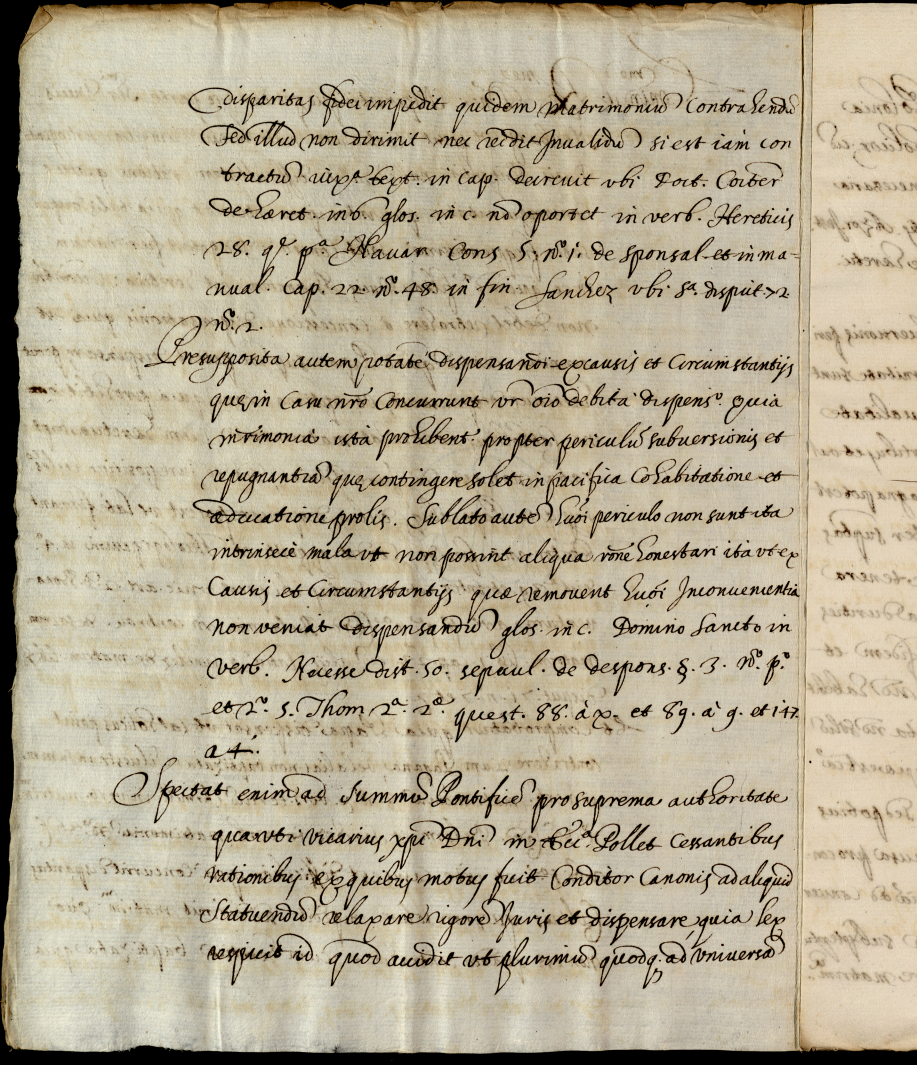 Disparitas fidei impedit quidem Matrimoniũ Contrahendũ
sed illud non dirimit nec reddit Inualidũ si est iàm con
tractũ iuxª text. in Cap. decreuit vbi Doct. Coiter
de hæret. in 6. glos. in c. nõ oportet in verb. Hereticis
28. qª. pª. Nauar. Cons. 5. nº. 1. de sponsal. et in ma=
nual. Cap. 22. nº. 48. in fin. Sanchez vbi sª. disput. 72.
nº. 2.
Presupposita autem põtate dispensandi ex causis et Circumstantijs
quę in Casu nrõ Concurrunt vr̃ oĩo debita dispensº. Quia
mr̃imonia ista prohibent.ʳ propter periculũ subuersionis et
repugnantiã quę contingere solet in pacifica Cohabitatione et
æducatione prolis. Sublato autẽ huõi periculo non sunt ita
intrinsecè mala vt non possint aliqua rõne honestari ità vt ex
Causis et Circumstantijs quæ remouent huõi Inconuenientia
non veniat dispensandũ glos. in c. Domino Sancto in
verb. Necesse dist. 50. sepául. de despons. §. 3. Nº. pº.
et 2º. S. Thom 2ª. 2ę. quest. 88. à X. et 89. à 9. et 147.
a 4.
Spectat enim ad Summũ Pontificẽ pro suprema authoritate
qua vti vicarius xp̃i Dñi in Eccª. Pollet Cessantibus
rationibus ex quibus motus fuit Conditor Canonis ad aliquid
Statuendũ relaxare rigorẽ Juris et dispensare, quia lex
respicit id quod accidit vt plurimũ quodq. ad vniversã